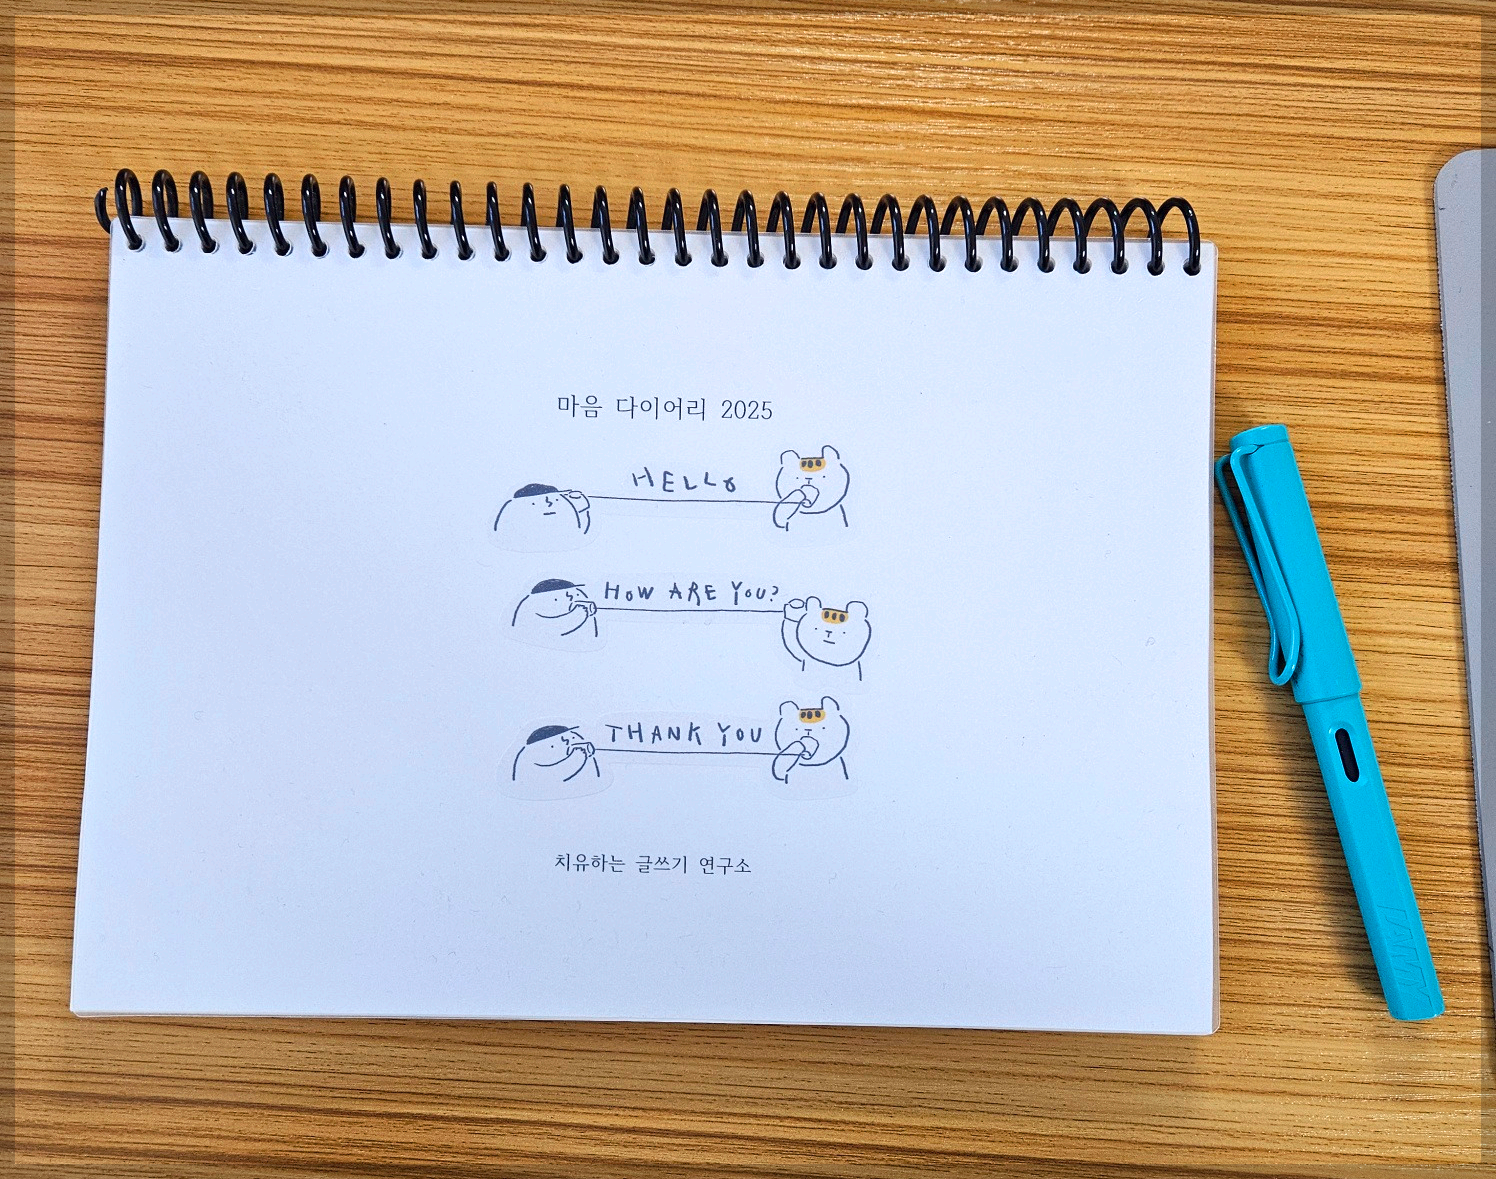 마음 다이어리 2025
HELLO
HOW ARE YOU?
THANK YOU
치유하는 글쓰기 연구소
LAMY